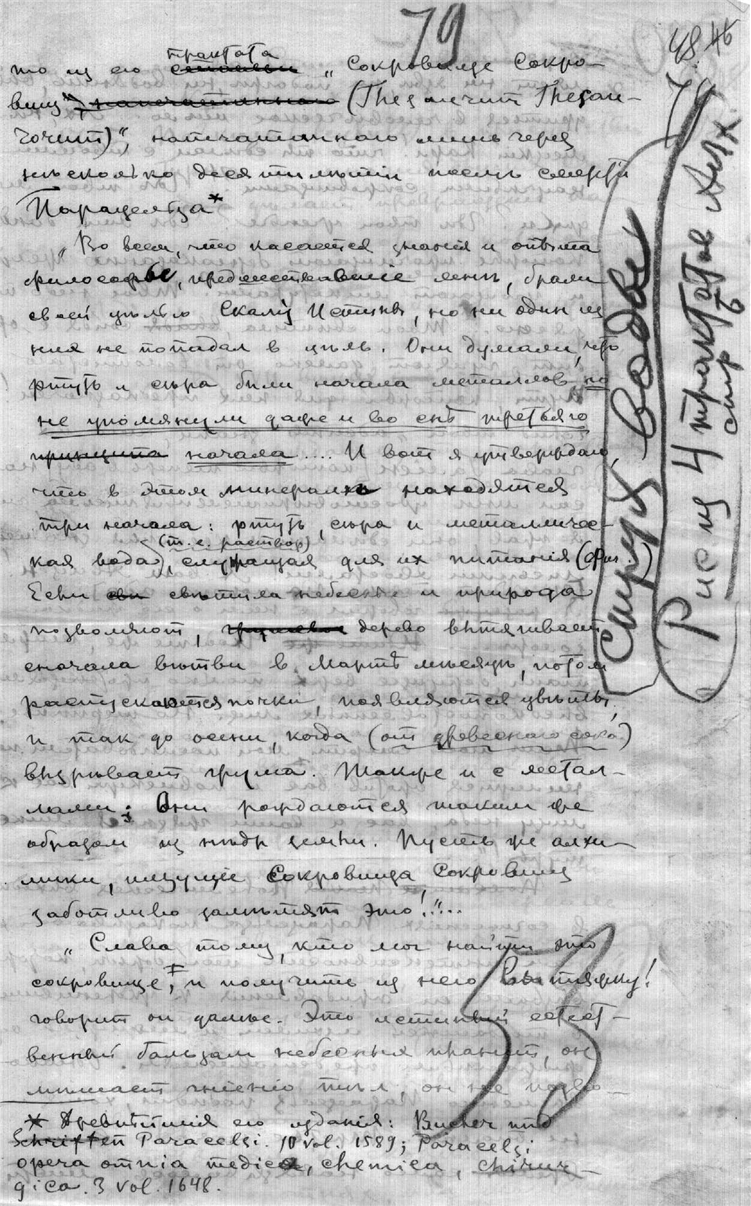 79
48
то из его трактата „Сокровище Сокро-
вищ" (Thesaurum Thesau-
rorum)", напечатанного лишь через
нѣсколько десятилѣтій послѣ смерти
Парацельза*
„Во всем, что касается знанія и опыта
философы, предшествавшие мнѣ, брали
своей цѣлью Скалу Истины, но ни один из
них не попадал в цѣль. Они думали, что
ртуть и сѣра были начала металлов но
не упомянули даже и во снѣ третьяго
принципа начала .... И вот я утверждаю,
что в этом минералѣ находятся
три начала: ртуть, сѣра и металличес-
кая вода (т.е. раствор), служащая для их питанія
Если свѣтила небесныя и природа
позволяют, дерево вытягивает
сначала вѣтви в Мартѣ мѣсяцѣ, потом
распускаются почки, появляются цвѣты,
и так до осени, когда (от древеснаго сока)
вызрѣвает груша. Также и с метал-
лами: Они рождаются таким же
образом из нѣдр земли. Пусть же алхи-
мики, ищущіе Сокровища Сокровищ
заботливо замѣтят это!"...
„Слава тому, кто мог найти это
сокровище, и получить из него вытяжку!
говорит он далѣе. Это истинный естест-
венный бальзам небесных планит, он
мѣшает гніенію тѣл, он не позво-
* Древнѣйшія его изданія: Bucher und
Schriften Paracelsi. 10 vol. 1589; Paracelsi
opera omnia medica, chemica, chirur-
gica. 3 vol. 1648.
Струѣ воды
Рис из 4 трактатов Алх
стр 6
53